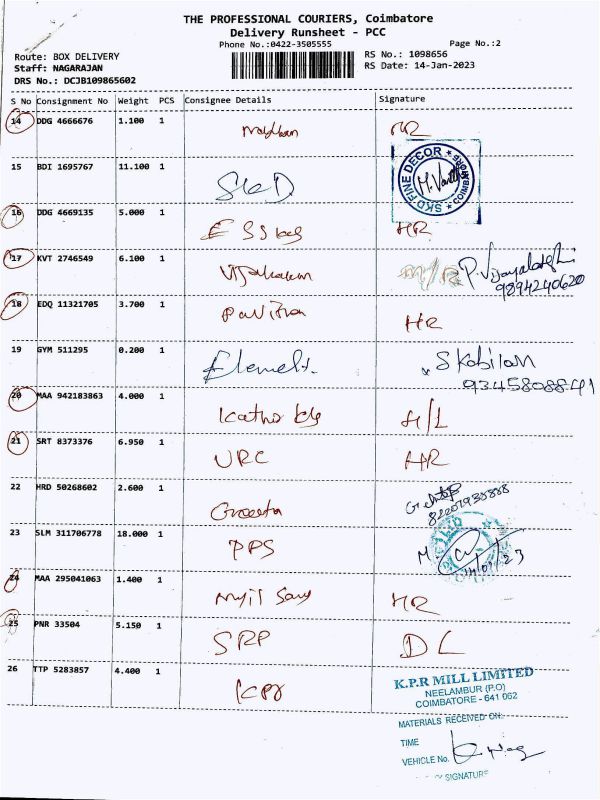 THE PROFESSIONAL COURIERS, Coimbatore
Delivery Runsheet - PCC
Phone No.:0422-3505555
Page No.:2
Route: BOX DELIVERY
RS No.: 1098656
Staff: NAGARAJAN
RS Date: 14-Jan-2023
DRS No.: DCJB109865602
S No Consignment No Weight PCS Consignee Details Signature
14 DDG 4666676 1.100 1
HR
15 BDI 1695767 11.100 1
SKD
SKD FINE DECOR
16 DDG 4669135 5.000 1
HR
17 KVT 2746549 6.100 1
P. Vijayalakshmi
9894240620
18 EDQ 11321705 3.700 1
Pavithra
HR
19 GYM 511295 0.200 1
Element.
S Kabilan
9345808841
20 MAA 942183863 4.000 1
H/L
21 SRT 8373376 6.950 1
URC HR
22 HRD 50268602 2.600 1
23 SLM 311706778 18.000 1
PPS
24 MAA 295041063 1.400 1
HR
25 PNR 33504 5.150 1
SRP DL
26 TTP 5283857 4.400 1
KPR
K.P.R MILL LIMITED
NEELAMBUR (P.O)
COIMBATORE - 641 062
MATERIALS RECEIVED ON:
TIME
VEHICLE No.
SIGNATURE